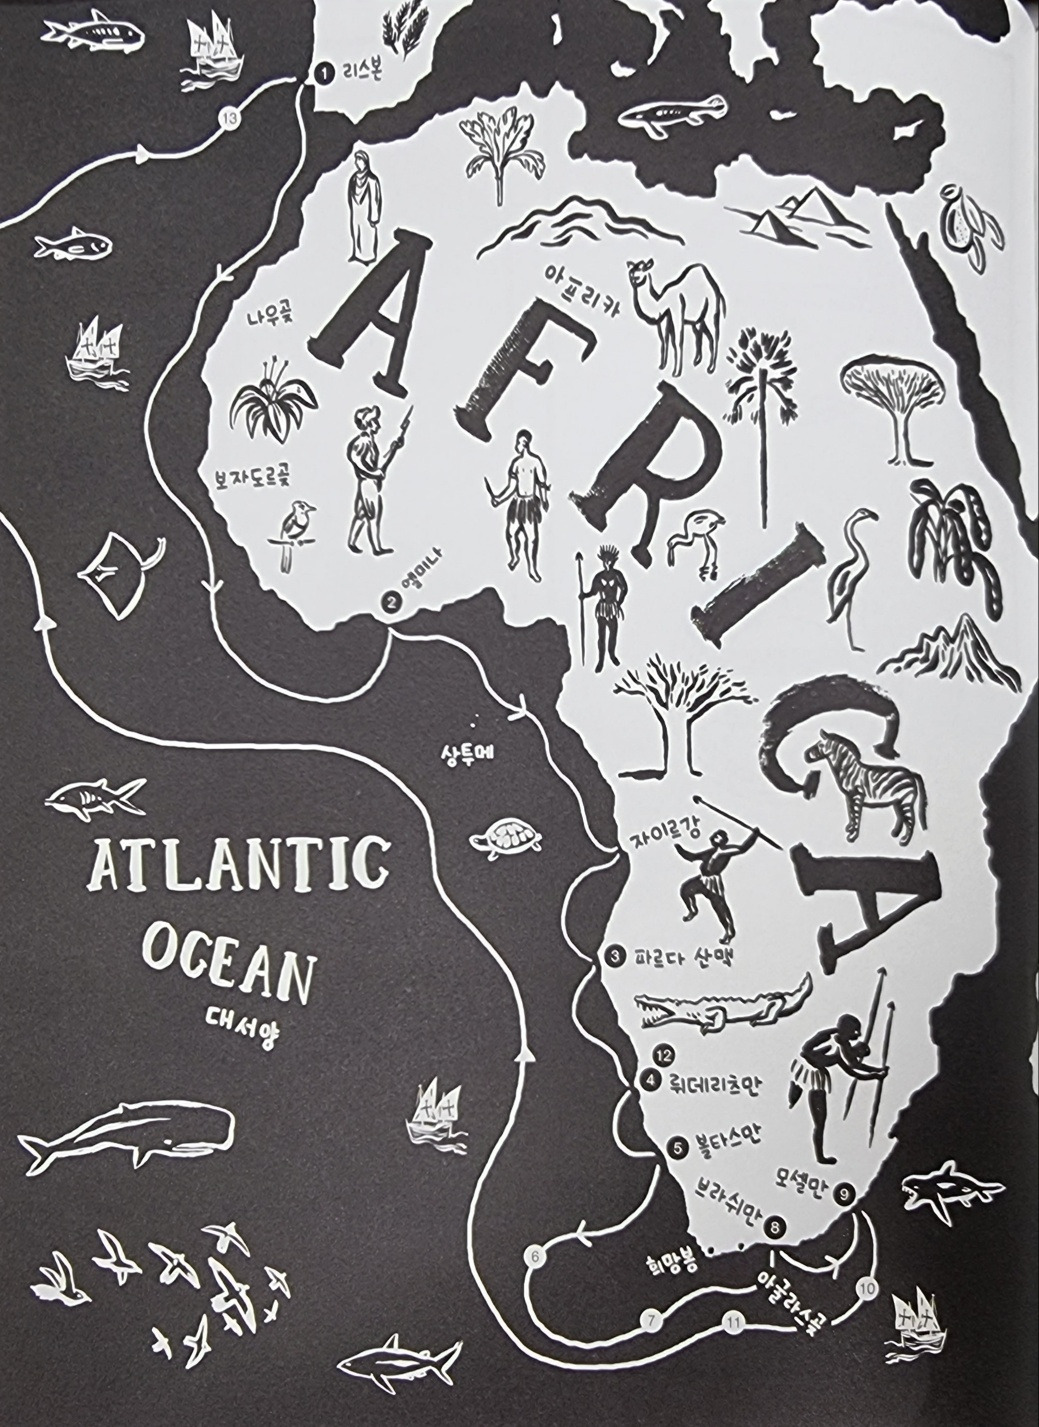 1 리스본
13
나우곶
아프리카
AFRICA
보자도르곶
2 엘미나
상투메
자이르강
ATLANTIC
OCEAN
대서양
3 파르다 산맥
12
4 뤼데리츠만
5 볼타스만
모셀만 9
브라쉬만 8
6
희망봉
아굴라스곶
10
7
11